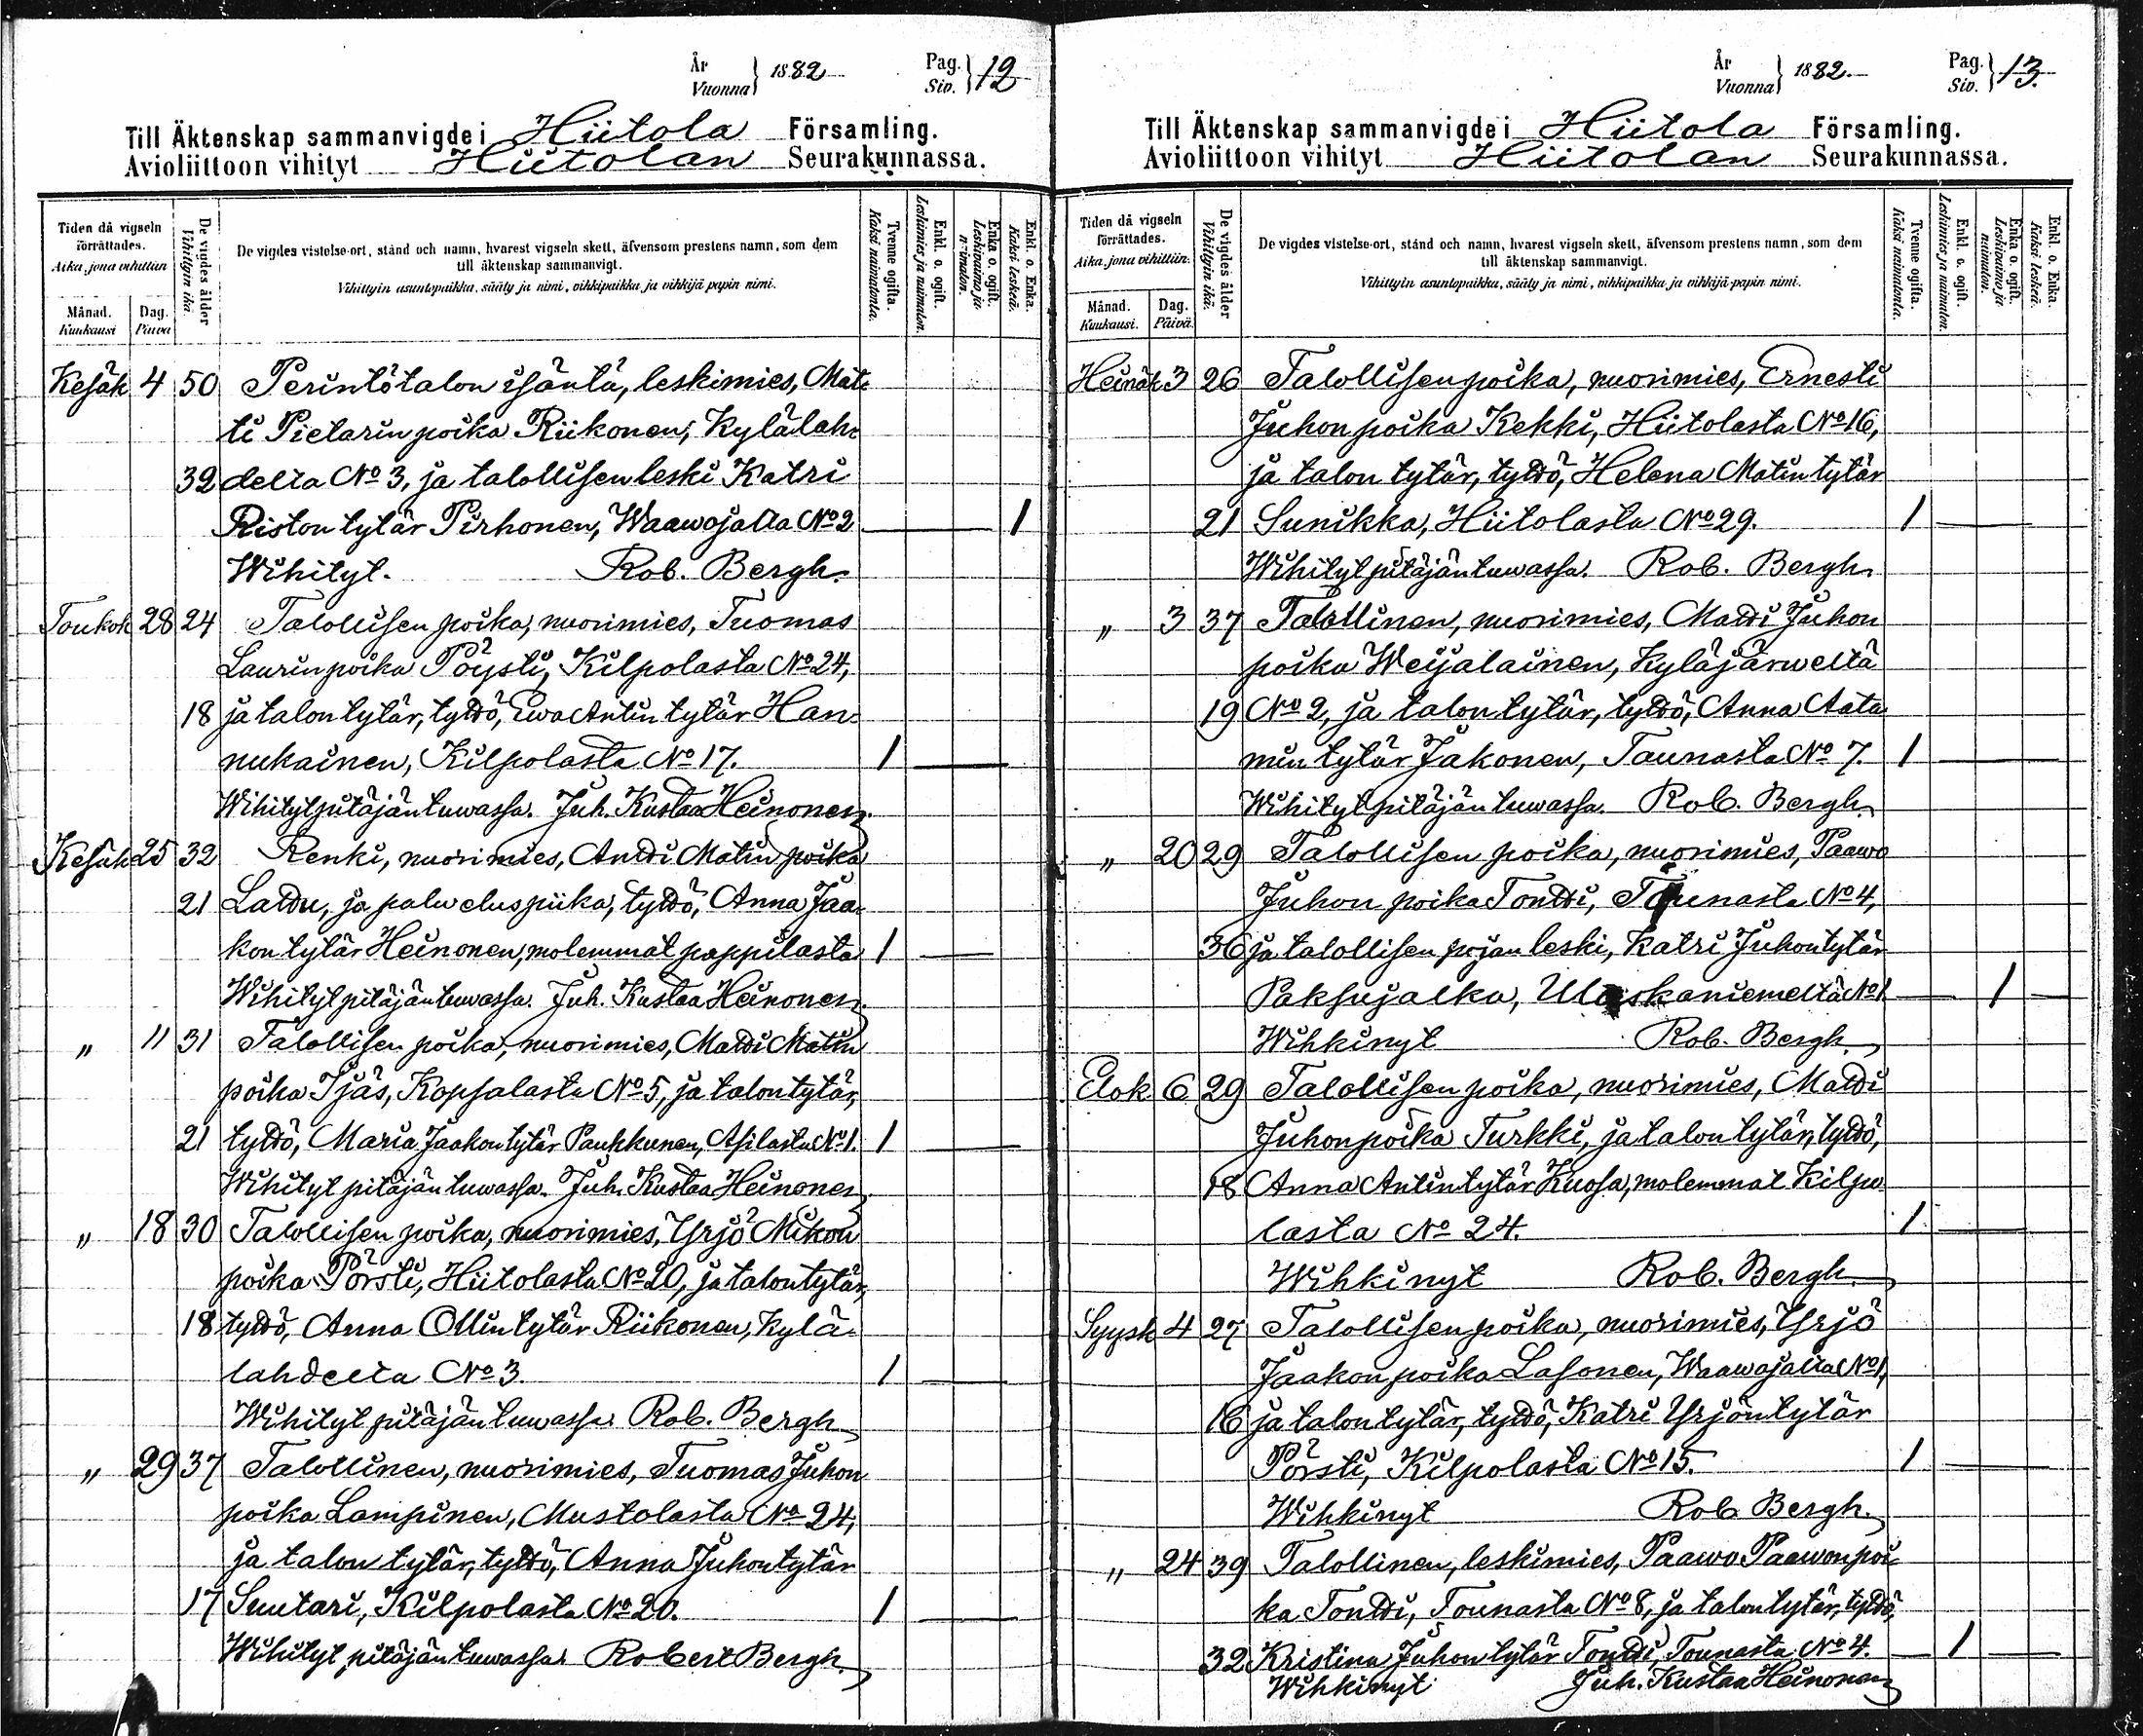 År
Vuonna } 1882
Pag.
Siv. } 12
Till Äktenskap sammanvigde i Hiitola Församling.
Avioliittoon vihityt Hiitolan Seurakunnassa.
Tiden då vigseln förrättades.
Aika, jona vihittiin
Månad.
Kuukausi
Dag.
Päivä
De vigdes ålder
Vihittyin ikä.
De vigdes vistelse-ort, stånd och namn, hvarest vigseln skett, äfvensom prestens namn, som dem
till äktenskap sammanvigt.
Vihittyin asuntopaikka, sääty ja nimi, vihkipaikka ja vihkijä papin nimi.
Tvenne ogifta.
Kaksi naimatonta.
Enkl. o. ogift.
Leskimies ja naimaton.
Enka o. ogift.
Leskivaimo ja
naimaton.
Enkl. o. Enka.
Kaksi leskeä.
Kesäk 4 50 Perintötalon isäntä, leskimies, Mat-
ti Pietarin poika Riikonen, Kylälah-
32 delta No 3, ja talollisen leski Katri
Riston tytär Pirhonen, Waawojalla No 2 1
Wihityt. Rob. Bergh.
Toukok 28 24 Talollisen poika, nuorimies, Tuomas
Laurin poika Pöysti, Kilpolasta No 24,
18 ja talon tytär, tyttö, Ewa Antin tytär Han-
nukainen, Kilpolasta No 17. 1
Wihityt pitäjän tuwassa. Juh. Kustaa Heinonen.
Kesäk 25 32 Renki, nuorimies, Antti Matin poika
21 Lattu, ja palweluspiika, tyttö, Anna Jaa-
kon tytär Heinonen, molemmat pappilasta 1
Wihityt pitäjän tuwassa. Juh. Kustaa Heinonen.
" 11 31 Talollisen poika, nuorimies, Matti Matin
poika Ijäs, Kopsalasta No 5, ja talon tytär,
21 tyttö, Maria Jaakon tytär Paukkunen, Asilasta No 1. 1
Wihityt pitäjän tuwassa. Juh. Kustaa Heinonen
" 18 30 Talollisen poika, nuorimies, Yrjö Mikon
poika Pörsti, Hiitolasta No 20, ja talon tytär,
18 tyttö, Anna Ollin tytär Riikonen, Kylä-
lahdelta No 3. 1
Wihityt pitäjän tuwassa Rob. Bergh
" 29 37 Talollinen, nuorimies, Tuomas Juhon
poika Lampinen, Mustolasta No 24,
ja talon tytär, tyttö, Anna Juhon tytär
17 Suutari, Kilpolasta No 20. 1
Wihityt pitäjän tuwassa Robert Bergh
År
Vuonna } 1882
Pag.
Siv. } 13.
Till Äktenskap sammanvigde i Hiitola Församling.
Avioliittoon vihityt Hiitolan Seurakunnassa.
Tiden då vigseln förrättades.
Aika, jona vihittiin.
Månad.
Kuukausi.
Dag.
Päivä.
De vigdes ålder
Vihittyin ikä.
De vigdes vistelse-ort, stånd och namn, hvarest vigseln skett, äfvensom prestens namn, som dem
till äktenskap sammanvigt.
Vihittyin asuntopaikka, sääty ja nimi, vihkipaikka ja vihkijä-papin nimi.
Tvenne ogifta.
Kaksi naimatonta.
Enkl. o. ogift.
Leskimies ja naimaton.
Enka o. ogift.
Leskivaimo ja
naimaton.
Enkl. o. Enka.
Kaksi leskeä.
Heinäk 3 26 Talollisen poika, nuorimies, Ernesti
Juhon poika Kekki, Hiitolasta No 16,
ja talon tytär, tyttö, Helena Matin tytär
21 Sunikka, Hiitolasta No 29. 1
Wihityt pitäjän tuwassa. Rob. Bergh
" 3 37 Talollinen, nuorimies, Matti Juhon
poika Weijalainen, Kyläjärweltä
19 No 2, ja talon tytär, tyttö, Anna Aata-
min tytär Jakonen, Taunasta No 7. 1
Wihityt pitäjän tuwassa. Rob. Bergh
" 20 29 Talollisen poika, nuorimies, Paawo
Juhon poika Tontti, Tounasta No 4,
36 ja talollisen pojan leski, Katri Juhon tytär
Paksujalka, Ulaskaniemeltä No 1 1
Wihkinyt Rob. Bergh
Elok 6 29 Talollisen poika, nuorimies, Matti
Juhon poika Turkki, ja talon tytär, tyttö,
18 Anna Antin tytär Kuosa, molemmat Kilpo-
lasta No 24. 1
Wihkinyt Rob. Bergh
Syysk 4 27 Talollisen poika, nuorimies, Yrjö
Jaakon poika Lasonen, Waawajalla No 1,
16 ja talon tytär, tyttö, Katri Yrjön tytär
Pörsti, Kilpolasta No 15. 1
Wihkinyt Rob. Bergh.
" 24 39 Talollinen, leskimies, Paawo Paawon poi-
ka Tontti, Tounasta No 8, ja talon tytär, tyttö,
32 Kristina Juhon tytär Tontti, Tounasta No 4. 1
Wihkinyt Juh. Kustaa Heinonen